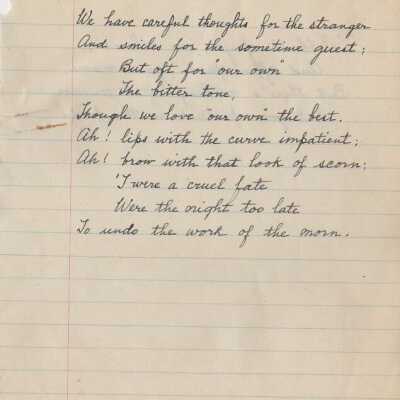 We have careful thoughts for the stranger
And smiles for the sometime guest;
But oft for "our own"
The bitter tone,
Though we love "our own" the best.
Ah! lips with the curve impatient;
Ah! brow with that look of scorn;
'Twere a cruel fate
Were the night too late
To undo the work of the morn.